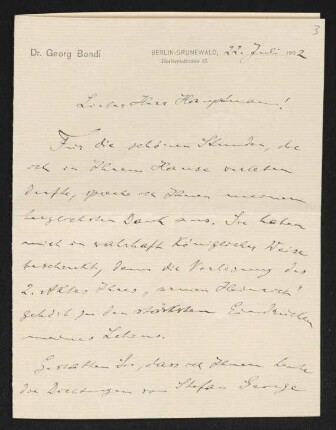 3
Dr. Georg Bondi
BERLIN-GRUNEWALD, 22. Juli 1902
Lieber Herr Hauptmann!
Für die schönen Stunden, die
ich in Ihrem Hause verleben
durfte, spreche ich Ihnen meinen
herzlichsten Dank aus. Sie haben
mich in wahrhaft Königlicher Weise
beschenkt, denn die Vorlesung des
2. Aktes Ihres „armen Heinrich"
gehört zu den stärksten Eindrücken
meines Lebens.
Gestatten Sie, dass ich Ihnen heute
die Dichtungen von Stefan George